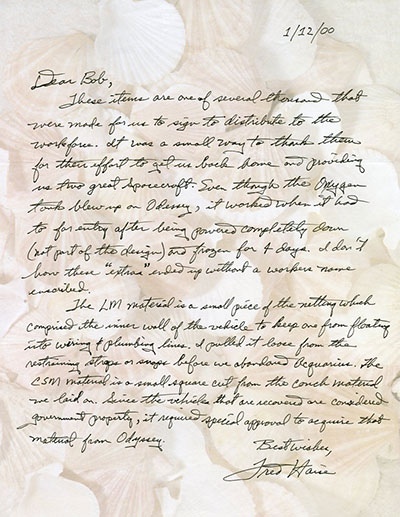 1/12/00
Dear Bob,
These items are one of several thousand that
were made for us to sign to distribute to the
workforce. It was a small way to thank them
for their effort to get us back home and providing
us two great Spacecraft. Even though the Oxygen
tank blew up on Odyssey, it worked when it had
to for entry after being powered completely down
(not part of the design) and frozen for 4 days. I don't
know these "extras" ended up without a workers name
inscribed.
The LM material is a small piece of the netting which
comprised the inner wall of the vehicle to keep one from floating
into wiring & plumbing lines. I pulled it loose from the
restraining straps or snaps before we abandoned Aquarius. The
CSM material is a small square cut from the couch material
we laid on. Since the vehicles that are recovered are considered
government property, it required special approval to acquire that
material from Odyssey.
Best wishes,
Fred Haise